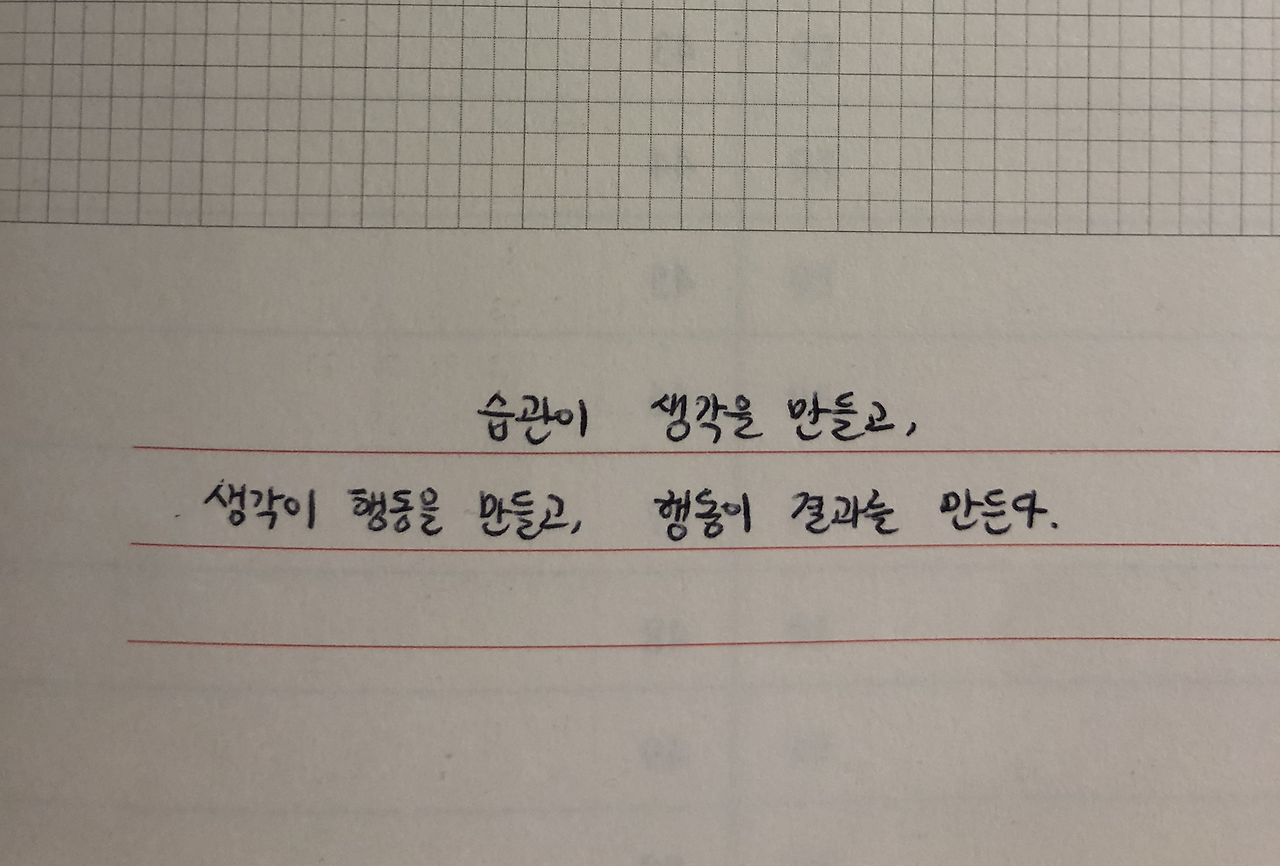 습관이 생각을 만들고,
생각이 행동을 만들고, 행동이 결과를 만든다.